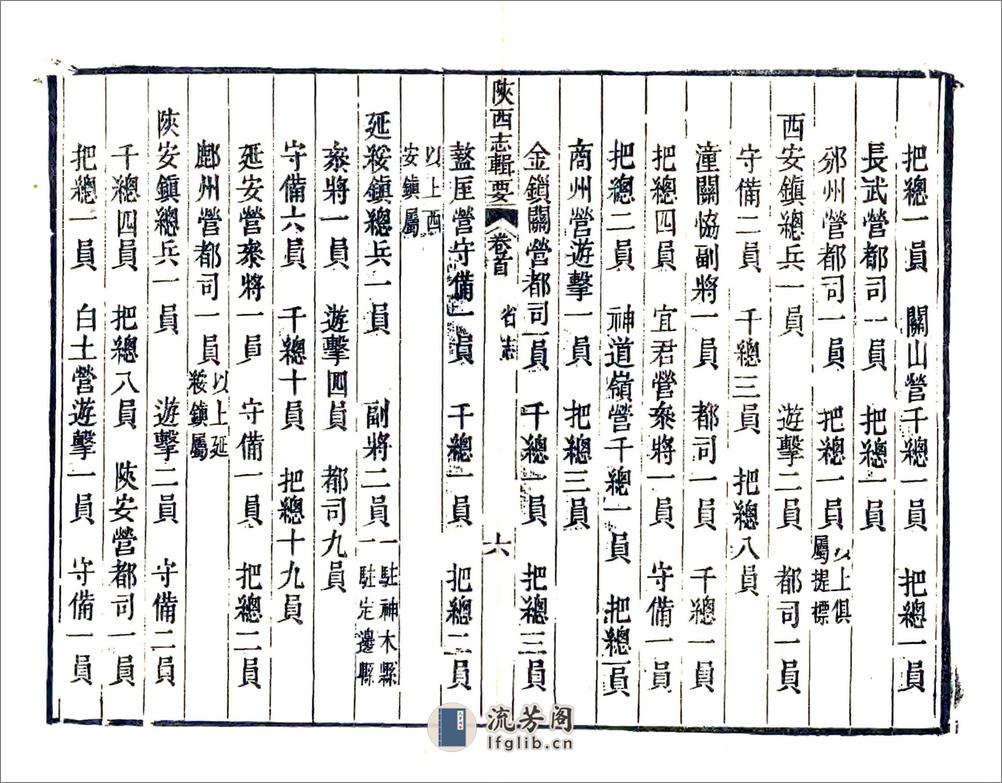 把總一員　關山營千總一員　把總一員
長武營都司一員　把總一員
邠州營都司一員　把總一員以上俱屬提標
西安鎮總兵一員　遊擊二員　都司一員
守備二員　千總三員　把總八員
潼關協副將一員　都司一員　千總一員
把總四員　宜君營叅將一員　守備一員
把總二員　神道嶺營千總一員　把總一員
商州營遊擊一員　把總三員
金鎖關營都司一員　千總一員　把總三員
陝西志輯要　卷首　省志　六
盩厔營守備一員　千總一員　把總二員
以上西安鎮屬
延綏鎮總兵一員　副將二員一駐神木縣一駐定邊縣
叅將一員　遊擊四員　都司九員
守備六員　千總十員　把總十九員
延安營叅將一員　守備一員　把總二員
鄜州營都司一員以上延綏鎮屬
陝安鎮總兵一員　遊擊二員　守備二員
千總四員　把總八員　陝安營都司一員
把總一員　白土營遊擊一員　守備一員
流芳阁
lfglib.cn